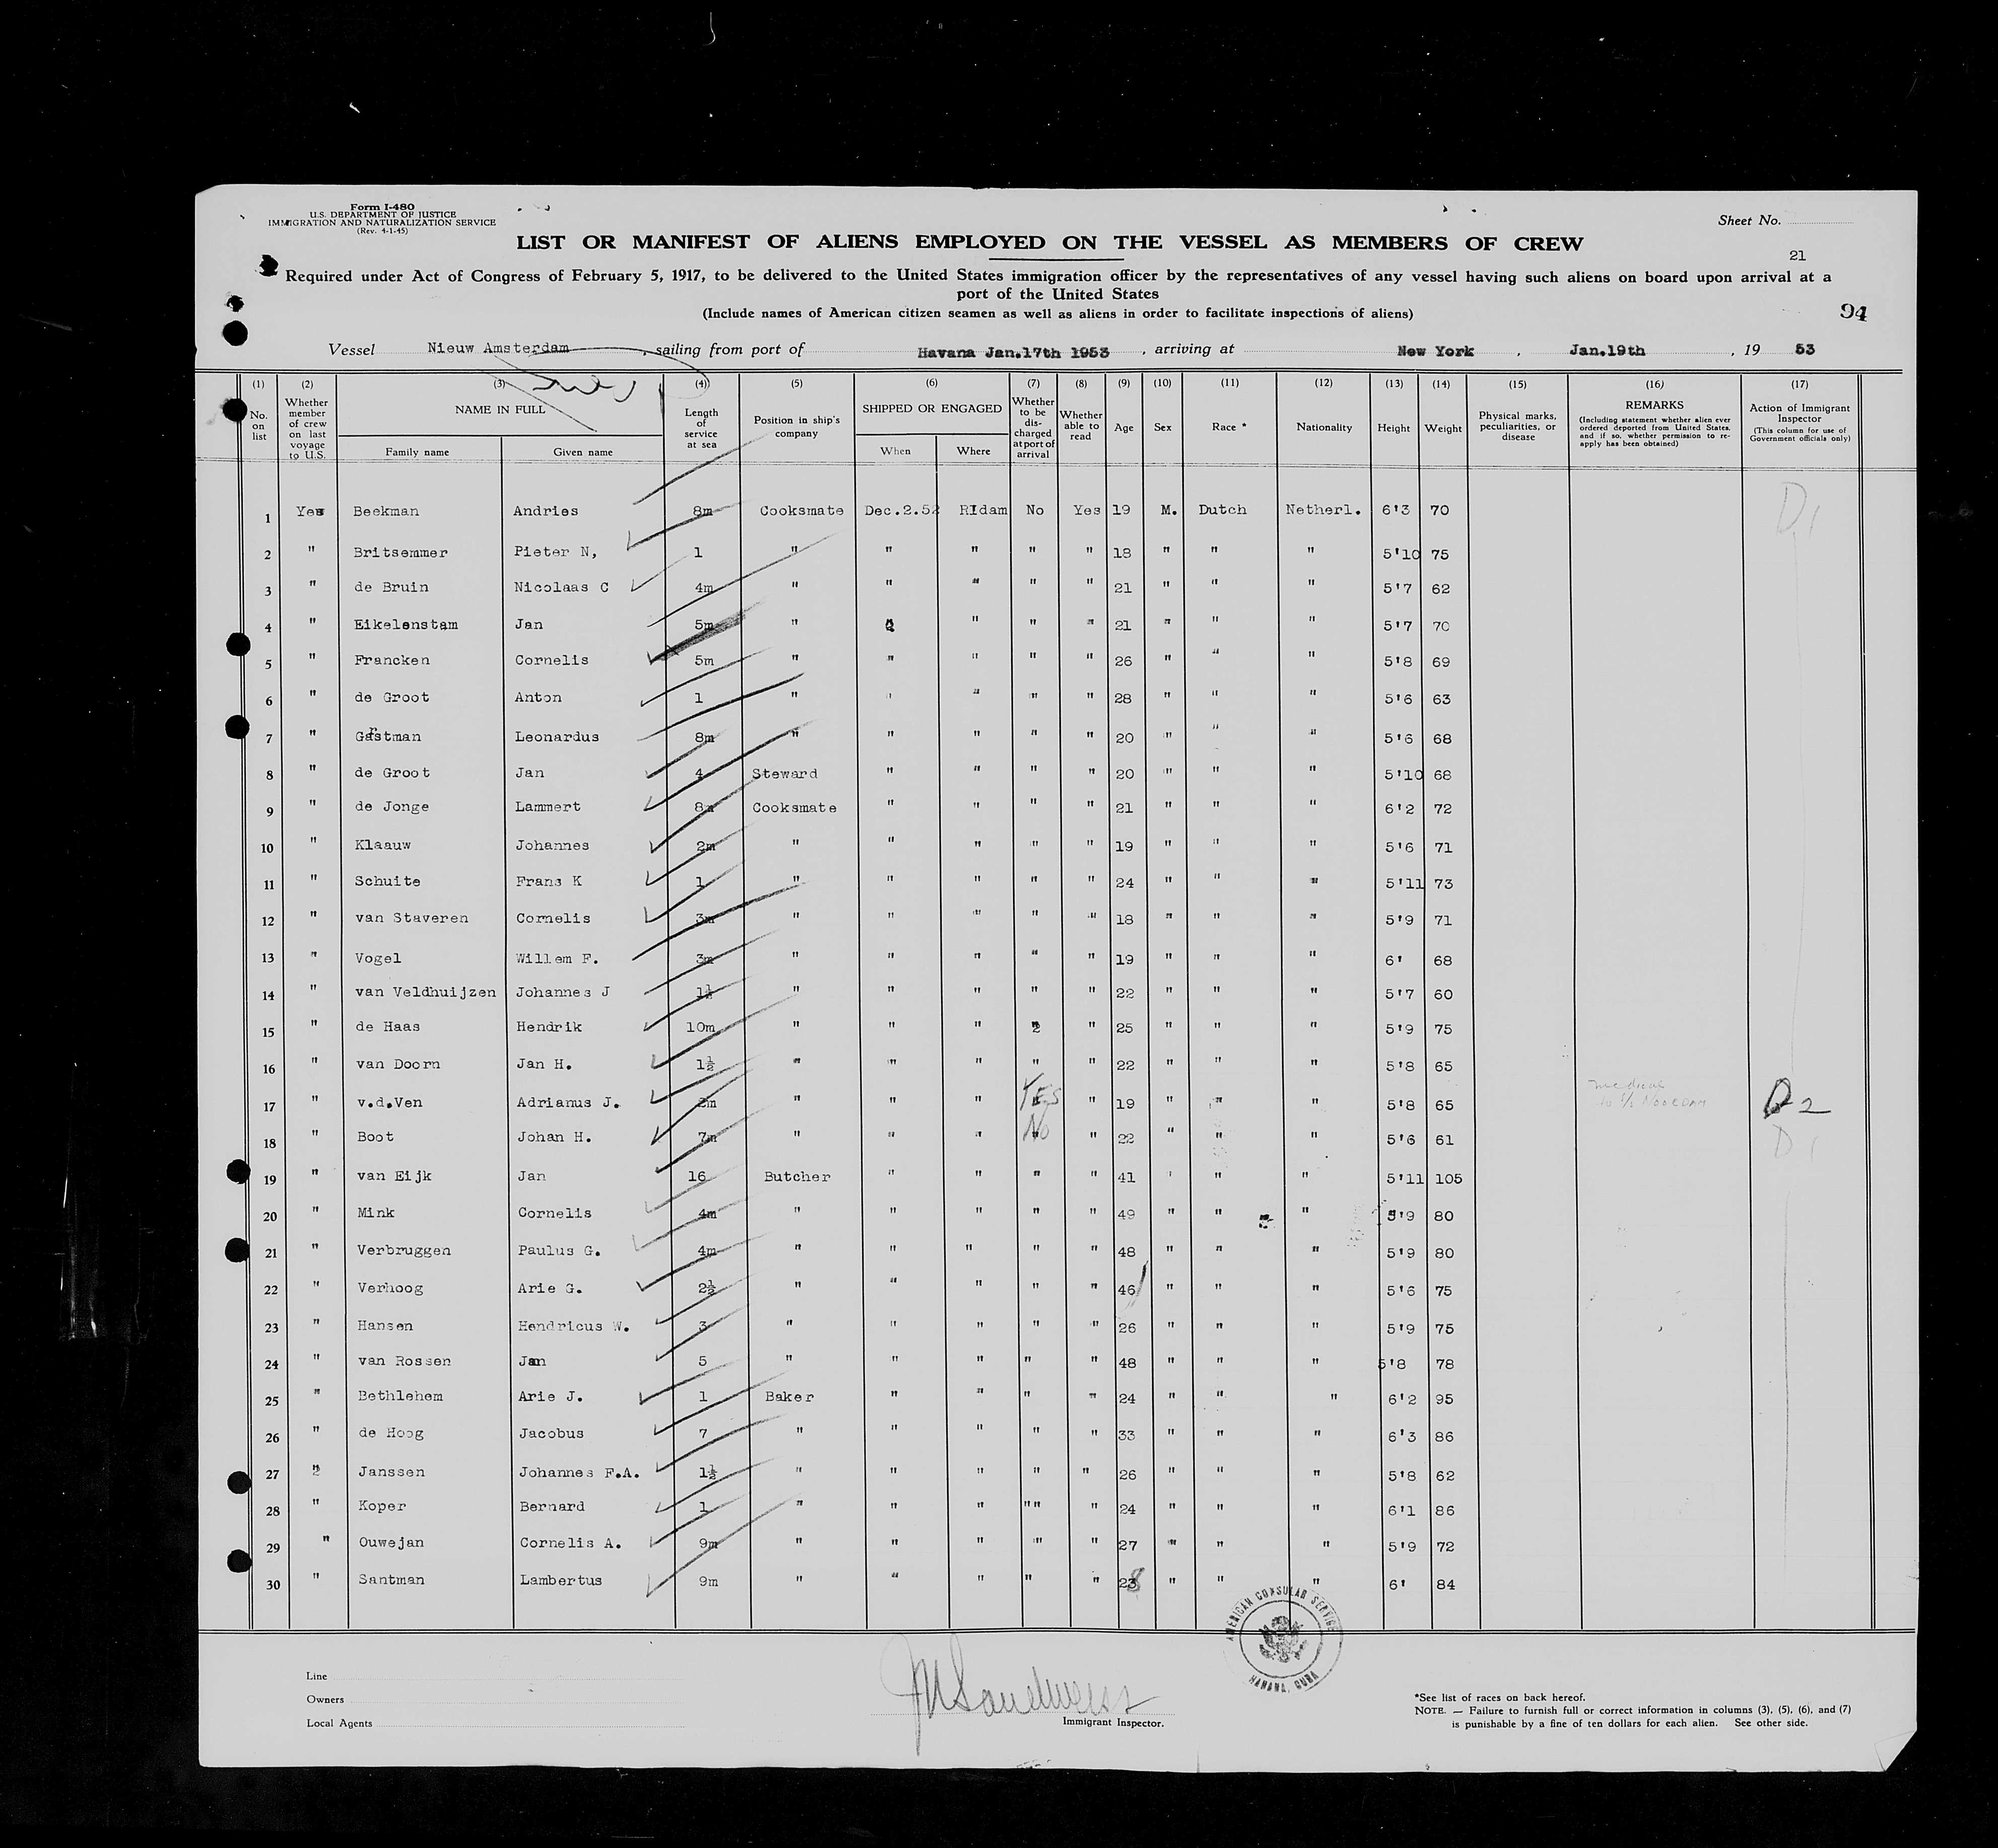 Form I-480
U.S. DEPARTMENT OF JUSTICE
IMMIGRATION AND NATURALIZATION SERVICE
(Rev. 4-1-45)
Sheet No.
21
LIST OR MANIFEST OF ALIENS EMPLOYED ON THE VESSEL AS MEMBERS OF CREW
Required under Act of Congress of February 5, 1917, to be delivered to the United States immigration officer by the representatives of any vessel having such aliens on board upon arrival at a
port of the United States
(Include names of American citizen seamen as well as aliens in order to facilitate inspections of aliens)
94
Vessel Nieuw Amsterdam, sailing from port of Havana Jan.17th 1953, arriving at New York, Jan.19th, 19 53
(1) (2) (3) (4) (5) (6) (7) (8) (9) (10) (11) (12) (13) (14) (15) (16) (17)
No. on list
Whether member of crew on last voyage to U.S.
NAME IN FULL
Family name
Given name
Length of service at sea
Position in ship's company
SHIPPED OR ENGAGED
When
Where
Whether to be discharged at port of arrival
Whether able to read
Age
Sex
Race *
Nationality
Height
Weight
Physical marks, peculiarities, or disease
REMARKS
(Including statement whether alien ever ordered deported from United States, and if so, whether permission to re-apply has been obtained)
Action of Immigrant Inspector
(This column for use of Government officials only)
1 Yes Beekman Andries 8m Cooksmate Dec.2.52 R'dam No Yes 19 M. Dutch Netherl. 6'3 70 D1
2 " Britsemmer Pieter N, 1 " " " " " 18 " " " 5'10 75
3 " de Bruin Nicolaas C 4m " " " " " 21 " " " 5'7 62
4 " Eikelenstam Jan 5m " " " " " 21 " " " 5'7 70
5 " Francken Cornelis 5m " " " " " 26 " " " 5'8 69
6 " de Groot Anton 1 " " " " " 28 " " " 5'6 63
7 " Gastman Leonardus 8m " " " " " 20 " " " 5'6 68
8 " de Groot Jan 4 Steward " " " " 20 " " " 5'10 68
9 " de Jonge Lammert 8m Cooksmate " " " " 21 " " " 6'2 72
10 " Klaauw Johannes 2m " " " " " 19 " " " 5'6 71
11 " Schuite Frans K 1 " " " " " 24 " " " 5'11 73
12 " van Staveren Cornelis 3m " " " " " 18 " " " 5'9 71
13 " Vogel Willem F. 3m " " " " " 19 " " " 6' 68
14 " van Veldhuijzen Johannes J 1½ " " " " " 22 " " " 5'7 60
15 " de Haas Hendrik 10m " " " " " 25 " " " 5'9 75
16 " van Doorn Jan H. 1½ " " " " " 22 " " " 5'8 65
17 " v.d.Ven Adrianus J. 2m " " " YES " 19 " " " 5'8 65 medical D2
18 " Boot Johan H. 7m " " " No " 22 " " " 5'6 61 D1
19 " van Eijk Jan 16 Butcher " " " " 41 " " " 5'11 105
20 " Mink Cornelis 4m " " " " " 49 " " " 5'9 80
21 " Verbruggen Paulus G. 4m " " " " " 48 " " " 5'9 80
22 " Verhoog Arie G. 2½ " " " " " 46 " " " 5'6 75
23 " Hansen Hendricus W. 3 " " " " " 26 " " " 5'9 75
24 " van Rossen Jan 5 " " " " " 48 " " " 5'8 78
25 " Bethlehem Arie J. 1 Baker " " " " 24 " " " 6'2 95
26 " de Hoog Jacobus 7 " " " " " 33 " " " 6'3 86
27 " Janssen Johannes F.A. 1½ " " " " " 26 " " " 5'8 62
28 " Koper Bernard 1 " " " "" " 24 " " " 6'1 86
29 " Ouwejan Cornelis A. 9m " " " " " 27 " " " 5'9 72
30 " Santman Lambertus 9m " " " " " 28 " " " 6' 84
AMERICAN CONSULAR SERVICE
HABANA, CUBA
Line
Owners
Local Agents
Immigrant Inspector.
*See list of races on back hereof.
NOTE. — Failure to furnish full or correct information in columns (3), (5), (6), and (7)
is punishable by a fine of ten dollars for each alien. See other side.